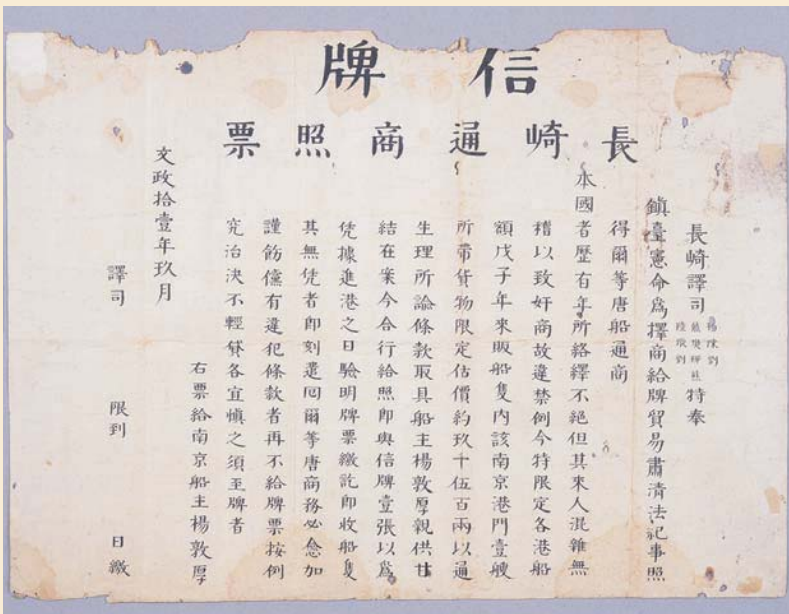 信牌
長崎通商照票
長崎譯司 特奉
鎮臺憲命為擇商給牌貿易肅清法紀事照
得爾等唐船通商
本國者歷有年所絡繹不絕但其來人混雜無
稽以致奸商故違禁例今特限定各港船
額戊子年來販船隻內該南京港門壹艘
所帶貨物限定估價約玖千伍百兩以通
生理所諭條款取具船主楊敦厚親供甘
結在案今合行給照即與信牌壹張以爲
凭據進港之日驗明牌票繳訖即收船隻
其無凭者即刻遣回爾等唐商務必愈加
謹飭儻有違犯條款者再不給牌票按例
究治決不輕貸各宜慎之須至牌者
右票給南京船主楊敦厚
文政拾壹年玖月
譯司
限到 日繳